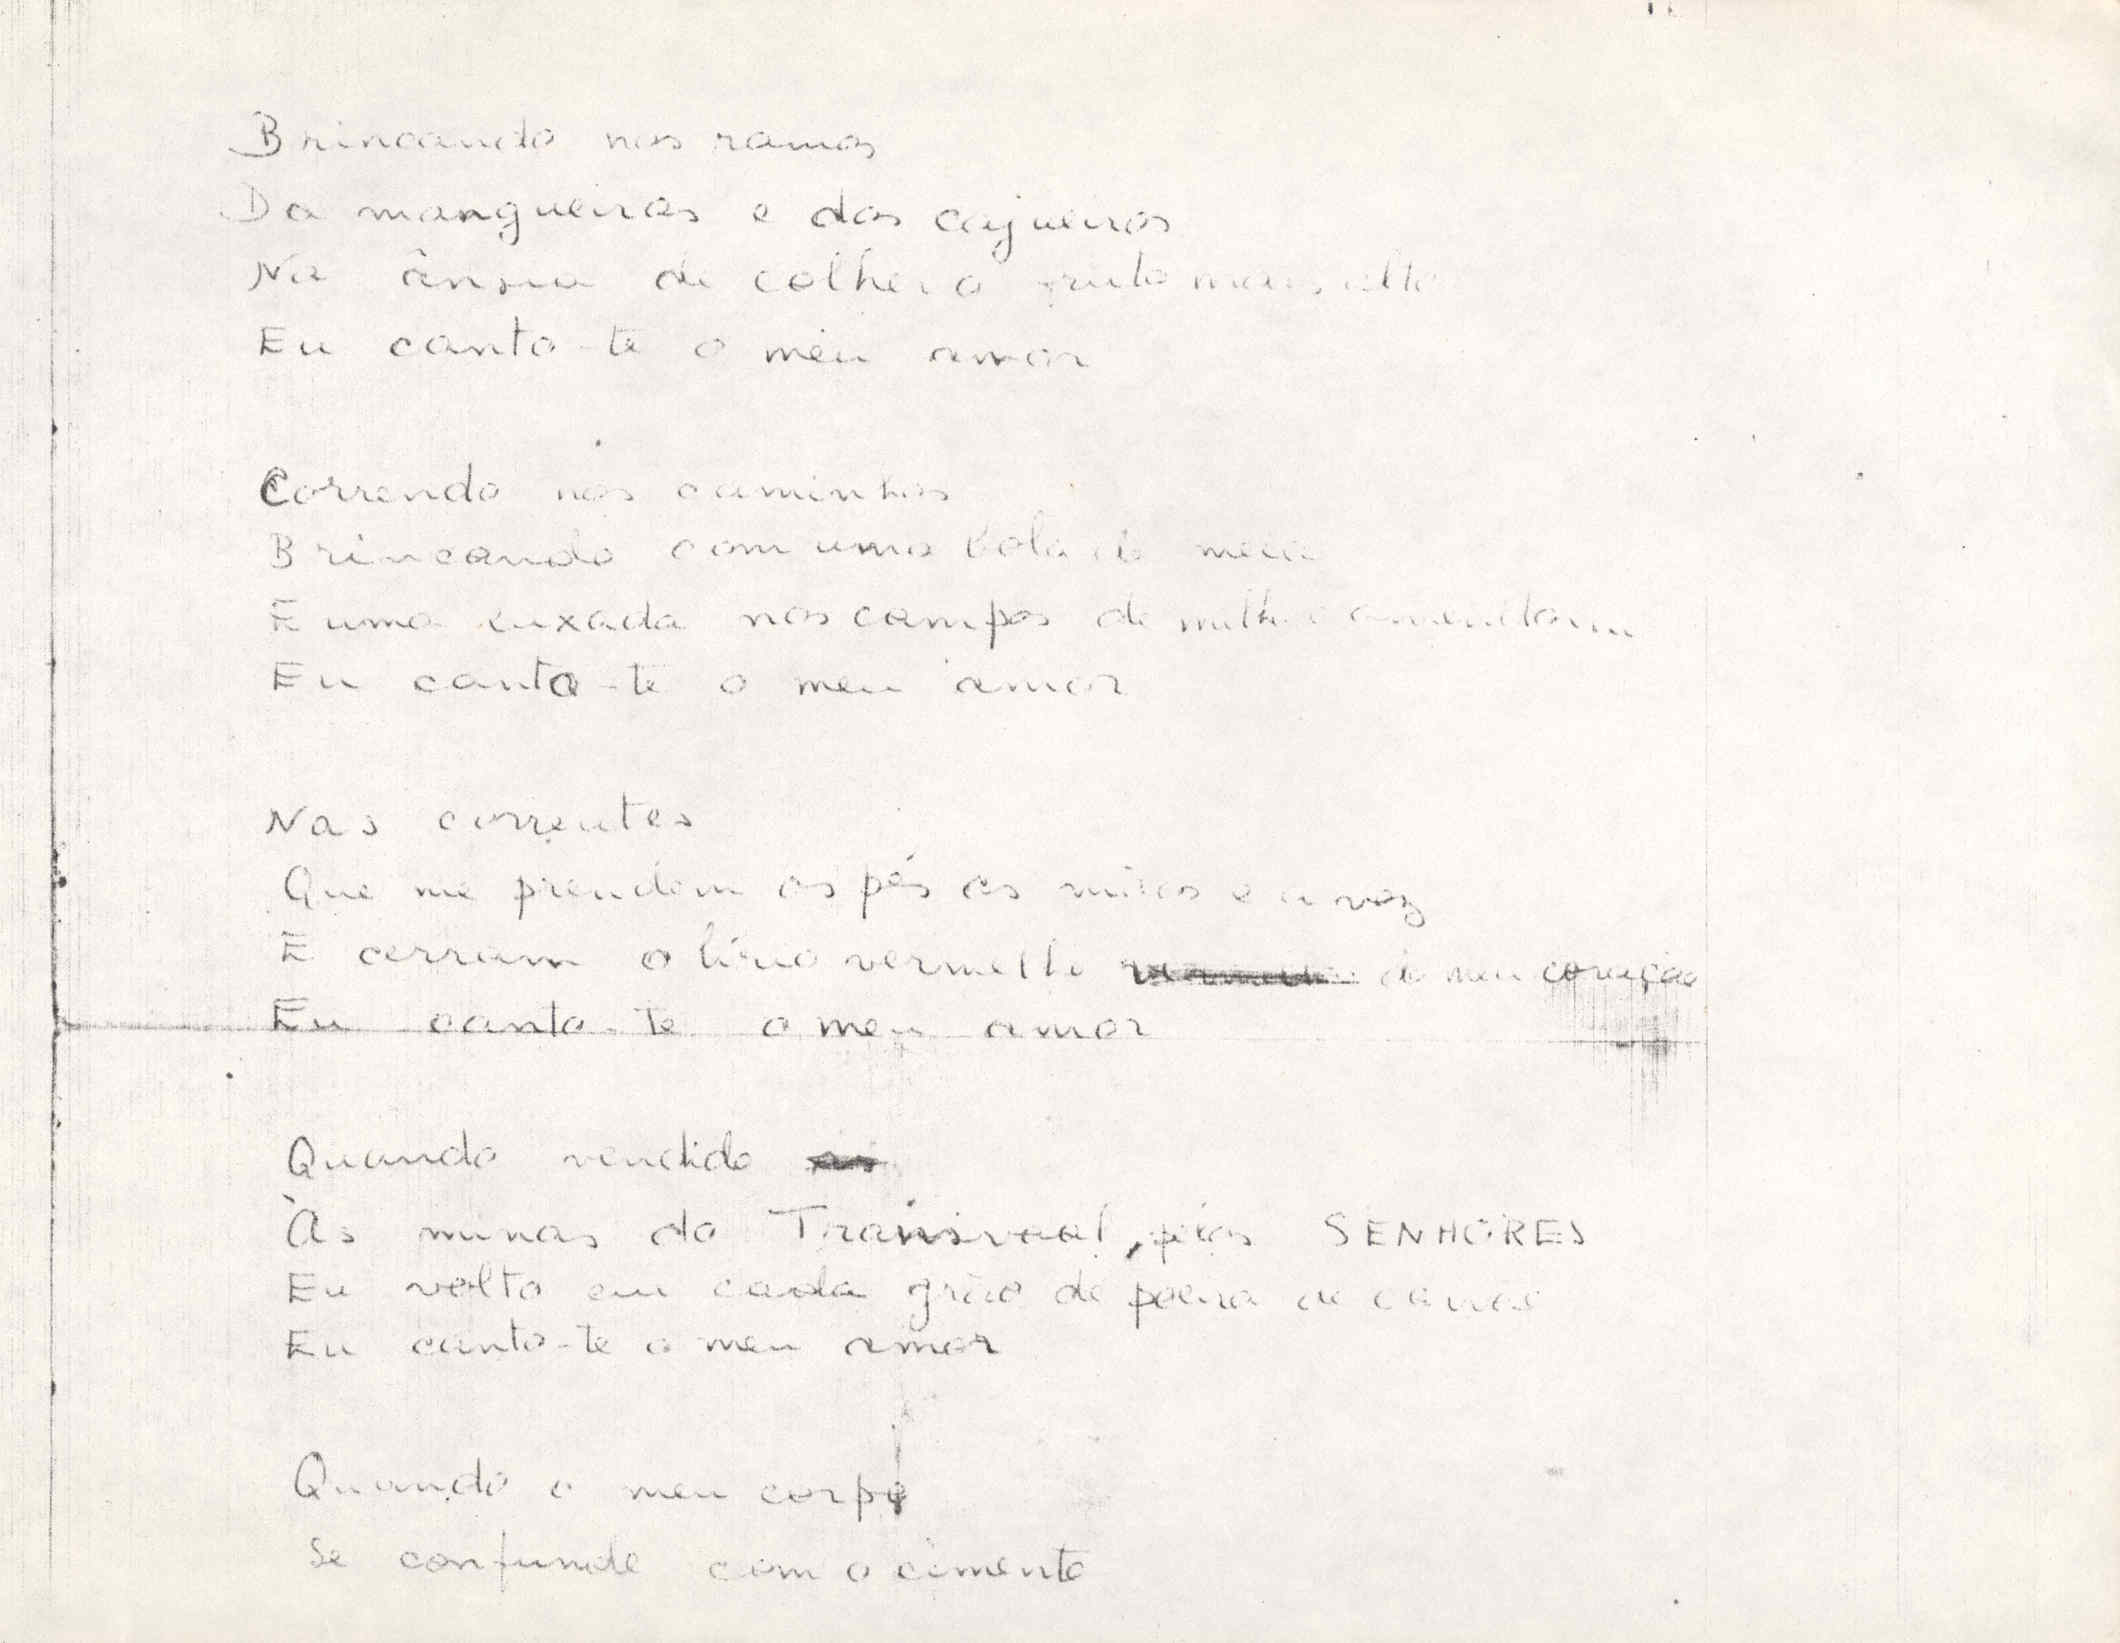 Brincando nos ramos
Da mangueiras e dos cajueiros
Na ânsia de colher o fruto mais alto
Eu canto-te o meu amor
Correndo nos caminhos
Brincando com uma bola de meia
E uma enxada nos campos de milho e amendoim
Eu canto-te o meu amor
Nas correntes
Que me prendem os pés as mãos e a voz
E cerram o lírio vermelho do meu coração
Eu canto-te o meu amor
Quando vendido as
Às minas do Transvaal, pelos SENHORES
Eu volto em cada grão de poeira de
Eu canto-te o meu amor
Quando o meu corpo
Se confunde com o cimento